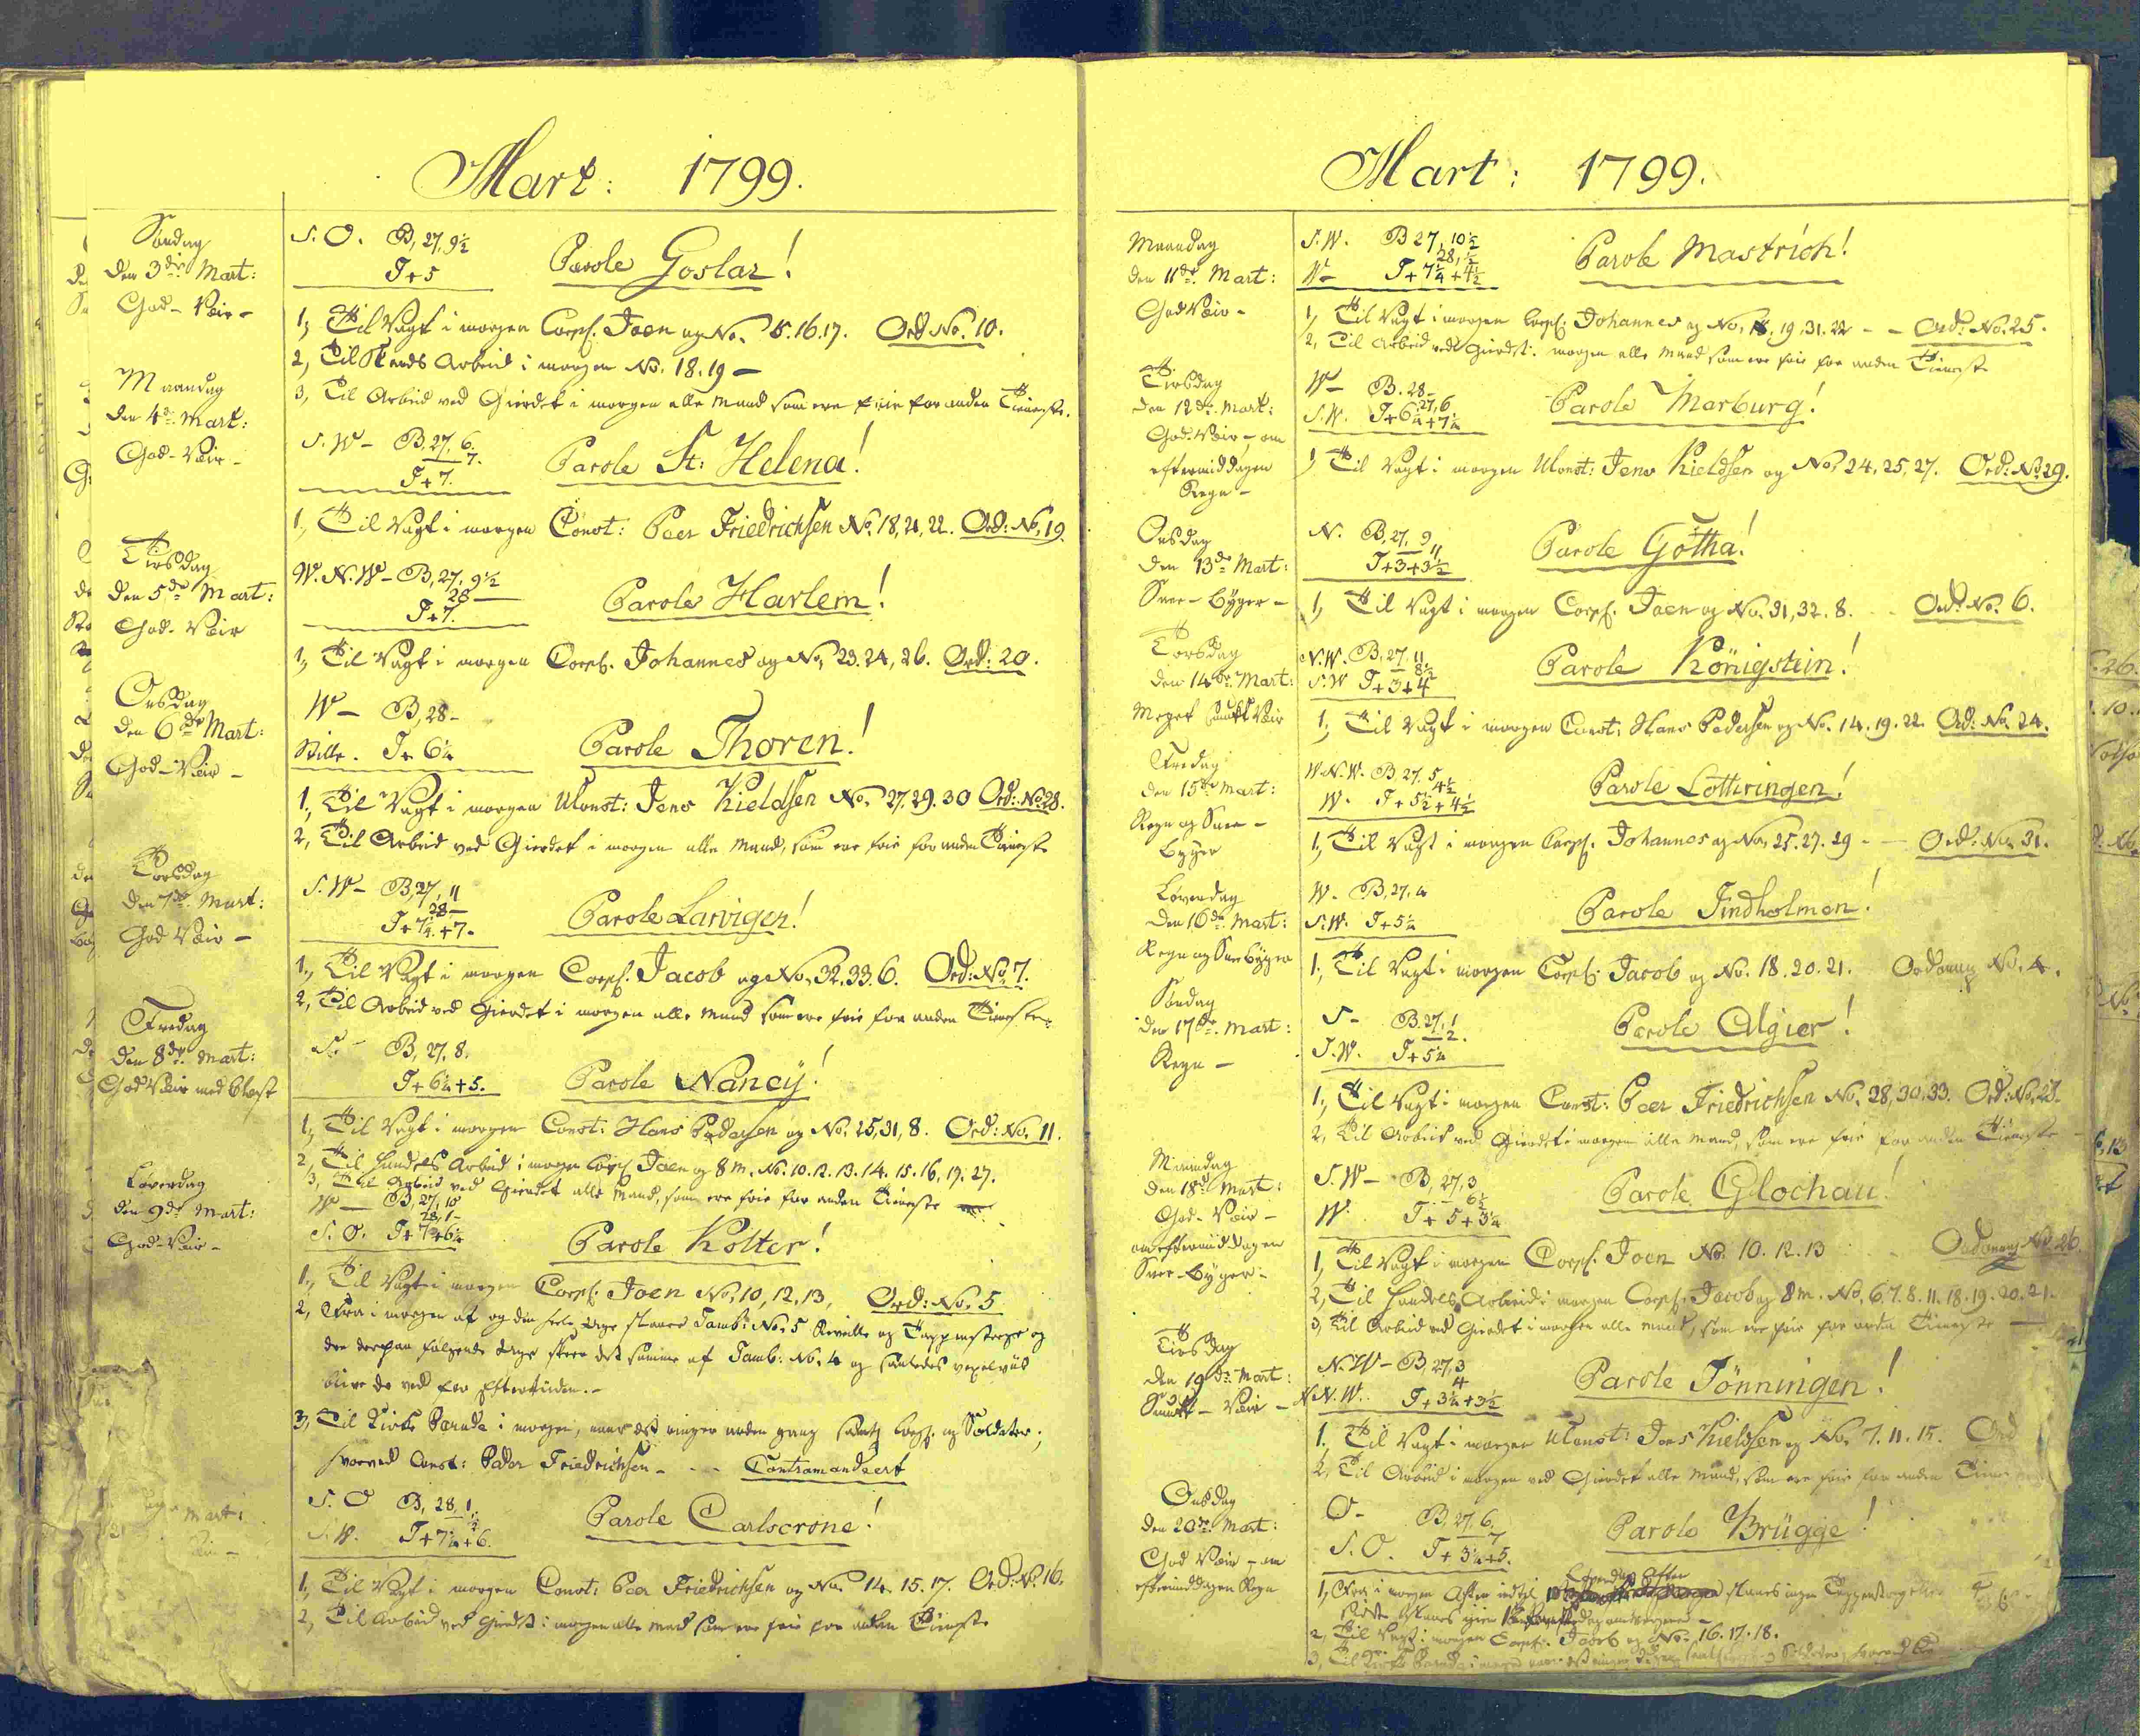 Mart: 1799.
Søndag
den 3die Mart:
God-Væir-
S. O. B, 27. 9½
T+5
Parole Goslar!
1, Til Vagt i morgen Corpl. Joen og No. 15.16.17. Ord No. 10.
2, Til Stends Arbeid i morgen No. 18.19 -
3, Til Arbeid ved Gierdet i morgen alle Mand som ere frie for anden Tieneste.
Maandag
den 4de Mart:
God-Væir-
S. W- B, 27, 6.
7.
T+7.
Parole St: Helena!
1, Til Vagt i morgen Const: Peer Friedrichsen No. 18, 21, 22. Ord: No. 19.
Tirsdag
den 5de Mart:
God-Væir
W. N. W- B, 27, 9½
28-
T+7.
Parole Harlem!
1, Til Vagt i morgen Corpl. Johannes og No. 23. 24, 26. Ord: 20.
Onsdag
den 6de Mart:
God-Væir-
W- B, 28-
Stille. T+ 6¼
Parole Thoren!
1, Til Vagt i morgen Uconst: Jens Kieldsen No. 27.29.30 Ord: No. 28.
2, Til Arbeid ved Gierdet i morgen alle Mand, som ere frie for anden Tieneste
Torsdag
den 7de Mart:
God Væir-
S. W- B, 27, 11
28-
T+7¼+7-
Parole Larvigen!
1, Til Vagt i morgen Corpl. Jacob og No. 32.33.6. Ord: No. 7.
2, Til Arbeid ved Gierdet i morgen alle Mand som ere frie for anden Tieneste.
Fredag
den 8de Mart:
God Væir med blæst
S. - B, 27, 8.
T+6¼+5.
Parole Nancÿ!
1, Til Vagt i morgen Const: Hans Pedersen og No. 25, 31, 8. Ord: No. 11.
2, Til Handels Arbeid i morgen Corpl Joen og 8 m. No. 10.12.13.14.15.16.17.27.
3, Til Arbeid ved Gierdet alle Mand, som ere frie for anden Tieneste
Løverdag
den 9de Mart:
God-Væir-
W- B, 27, 10
28, 1-
S. O. T+7+6¼
Parole Kolter!
1, Til Vagt i morgen Corpl. Joen No. 10, 12, 13, Ord: No. 5
2, Fra i morgen af og den heele Uge slaaer Tamb: No. 5 Reveille og Tappenstrege og
den derpaa følgende Uge skeer det samme af Tamb: No. 4 og saaledes vexelviis
blive de ved for Eftertiden.-
3, Til Kirke Parade i morgen, naar det ringer anden gang samtl Corpl. og Soldater;
hvorved Const: Peder Friedrichsen - - - Contramandeert
Mart:
S. O B, 28, 1
S. W. T+7¼+6.
Parole Carlscrone!
1, Til Vagt i morgen Const: Peer Friedrichsen og No. 14. 15. 17. Ord: No. 16.
2, Til Arbeid ved Gierdet i morgen alle Mand som ere frie for anden Tieneste
Mart: 1799.
Maandag
den 11de Mart:
God Væir-
S. W. B 27, 10½
28, ½
W- T+7¼+4½
Parole Mastrich!
1, Til Vagt i morgen Corpl: Johannes og No. 19, 31. 22 - - Ord: No. 25.
2, Til Arbeid ved Gierdet i morgen alle Mand som ere frie for anden Tieneste
Tirsdag
den 12de Mart:
God-Væir-, om
eftermiddagen
Regn-
W- B. 28-
27, 6
S. W. T+6¼+7¼
Parole Marburg!
1, Til Vagt i morgen Uconst: Jens Kieldsen og No. 24, 25, 27. Ord: No. 29.
Onsdag
den 13de Mart:
Snee-byger-
N. B, 27, 9
11
T+3+3½
Parole Gotha!
1, Til Vagt i morgen Corpl. Joen og No. 31, 32. 8. Ord: No. 6.
Torsdag
den 14de Mart:
Meget smukt Væir
N. W. B, 27, 11
8½
S. W T+3+4
Parole Königstein!
1, Til Vagt i morgen Const: Hans Pedersen og No. 14. 19. 22. Ord: No. 24.
Fredag
den 15de Mart:
Regn og Snee-
byger
W. N. W. B. 27. 5
4½
W. T+5½+4½
Parole Lothringen!
1, Til Vagt i morgen Corpl. Johannes og No. 25.27.29 - - Ord: No. 31.
Løverdag
den 16de Mart:
Regn og Sneebyger
W. B, 27, 4
S. W. T+5¼
Parole Findholmen!
1, Til Vagt i morgen Corpl: Jacob og No. 18. 20. 21. Ordonnz No. 4.
Søndag
den 17de Mart:
Regn-
S- B. 27, 1
2.
S. W. T+5¼
Parole Algier!
1, Til Vagt i morgen Const: Peer Friedrichsen No. 28, 30, 33. Ord: No. 23.
2, Til Arbeid ved Gierdet i morgen alle Mand, som ere frie for anden Tieneste
Maandag
den 18de Mart:
God-Væir-
om eftermiddagen
Snee-byger-
S. W- B, 27, 3
6½
W. T+5+3¼
Parole Glochau!
1, Til Vagt i morgen Corpl. Joen No. 10. 12. 13 Ordonnz No. 26.
2, Til Handels Arbeid i morgen Corpl. Jacob og 8 m. No. 6.7.8.11.18.19.20.21.
3, Til Arbeid ved Gierdet i morgen alle Mand, som ere frie for anden Tieneste
Tirsdag
den 19de Mart:
Smukt-Væir-
N. W- B, 27, 3
4
N. N. W. T+3¼+3½
Parole Tönningen!
1. Til Vagt i morgen Uconst: Jens Kieldsen og No. 7. 11. 15. Ord
2, Til Arbeid i morgen ved Gierdet alle Mand, som ere frie for anden Tiene
Onsdag
den 20de Mart:
God Væir-, om
eftermiddagen Regn
O- B. 27, 6
7
S. O. T+3¼+5.
Parole Brügge!
1, Fra i morgen Aften indtil Løverdag Aften slaaes ingen Tappenstrege
2, Til Vagt i morgen Corpl. Jacob og No. 16. 17. 18.
3, Til Kirke Parade i morgen naar det ringer